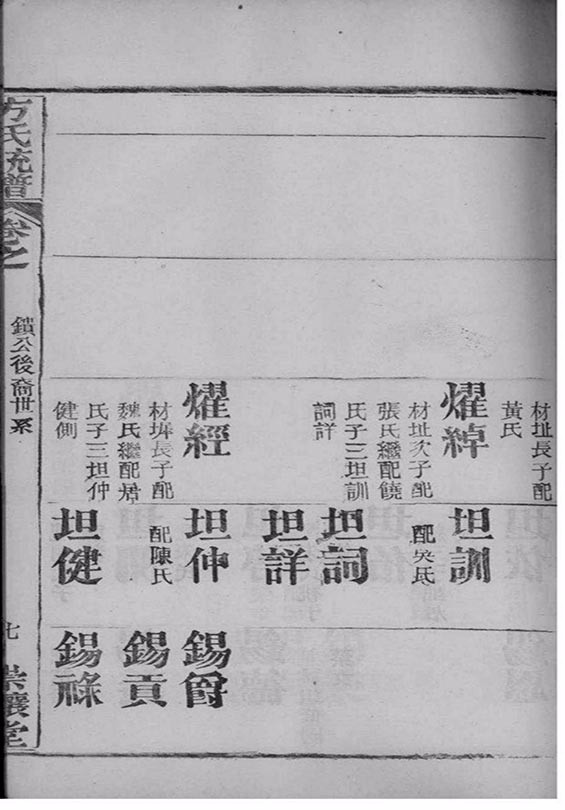 材址長子配
黃氏
燿綽
材址次子配
張氏繼配饒
氏子三坦訓
詞詳
燿經
材㘵長子配
魏氏繼配居
氏子三坦仲
健側
坦訓
配吳氏
坦詞
坦詳
坦仲
配陳氏
坦健
錫爵
錫貢
錫祿
方氏統譜
卷之
鎮公後裔世系
七
崇讓堂